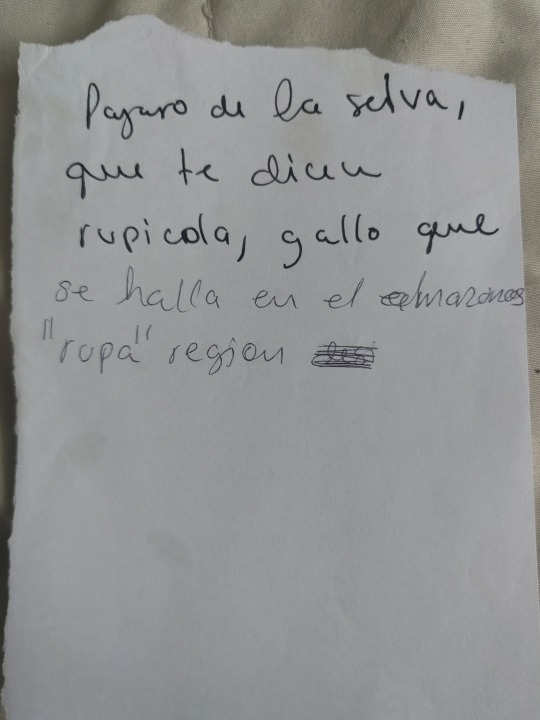 Pajaro de la selva,
que te dicen
rupicola, gallo que
se halla en el amazonas
"rupa" region